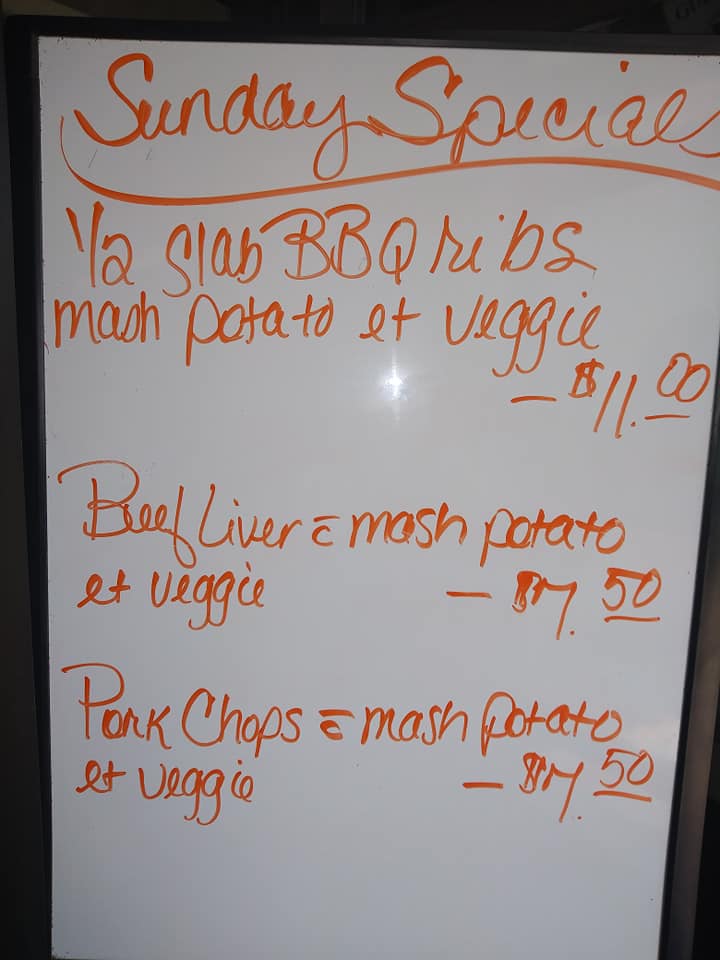 Sunday Specials
1/2 slab BBQ ribs
mash potato et veggie
- $11.00
Beef Liver c̄ mash potato
et veggie - $7.50
Pork Chops c̄ mash potato
et veggie - $7.50